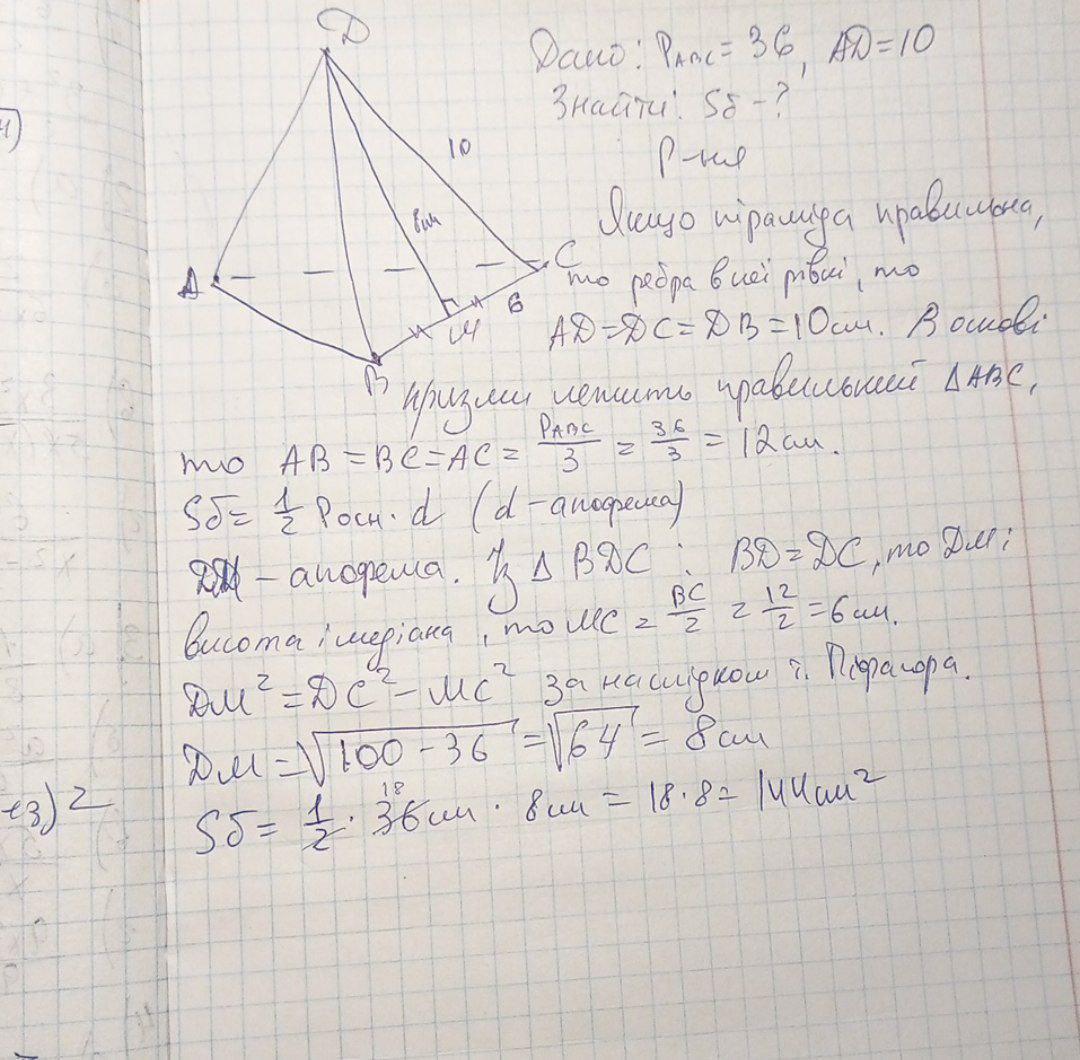 D
Дано: P_ABC = 36, AD = 10
Знайти: Sб - ?
Р-ня
10
8см
Якщо піраміда правильна,
A
C
то ребра в неї рівні, то
6
M
AD = DC = DB = 10 см. В основі
B
призми лежить правильний ΔABC,
то AB = BC = AC = P_ABC/3 = 36/3 = 12 см.
Sб = 1/2 Pосн · d (d - апофема)
DM - апофема. Із Δ BDC : BD = DC, то DM і
висота і медіана, то MC = BC/2 = 12/2 = 6 см.
DM² = DC² - MC² за наслідком т. Піфагора.
DM = √100 - 36 = √64 = 8 см
18
Sб = 1/2 · 36 см · 8 см = 18 · 8 = 144 см²
) 2